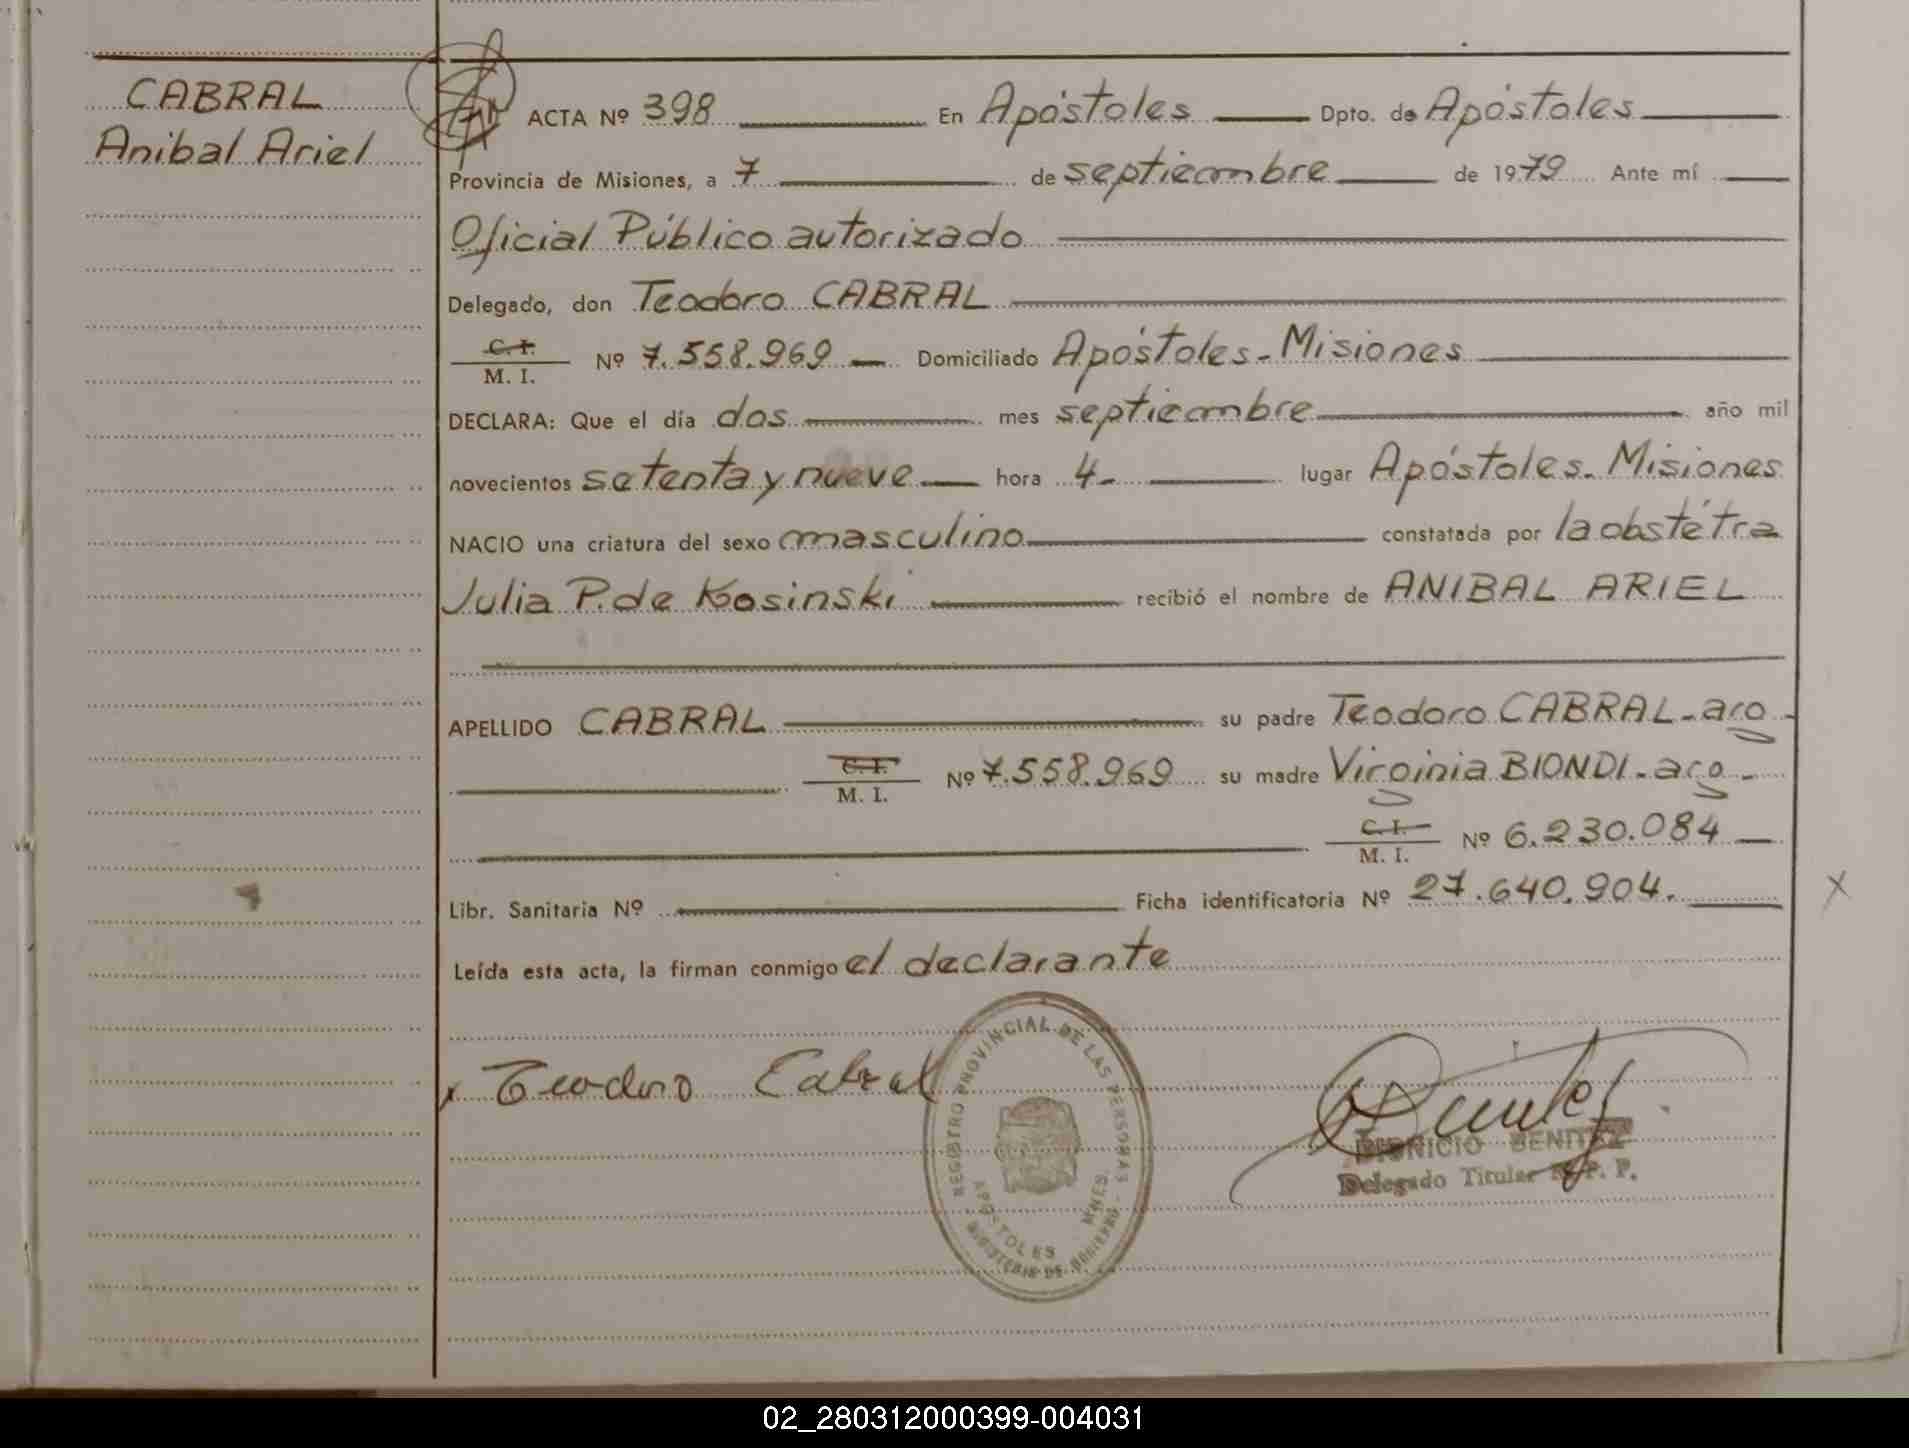 CABRAL
Anibal Ariel
ACTA Nº 398 En Apóstoles Dpto. de Apóstoles
Provincia de Misiones, a 7 de septiembre de 1979 Ante mí
Oficial Público autorizado
Delegado, don Teodoro CABRAL
C. I.
M. I. Nº 7.558.969 Domiciliado Apóstoles - Misiones
DECLARA: Que el día dos mes septiembre año mil
novecientos setenta y nueve hora 4- lugar Apóstoles - Misiones
NACIO una criatura del sexo masculino constatada por la obstétra
Julia P. de Kosinski recibió el nombre de ANIBAL ARIEL
APELLIDO CABRAL su padre Teodoro CABRAL - arg -
C. I.
M. I. Nº 7.558.969 su madre Virginia BIONDI - arg -
C. I.
M. I. Nº 6.230.084
Libr. Sanitaria Nº Ficha identificatoria Nº 27.640.904.
Leída esta acta, la firman conmigo el declarante
x Teodoro Cabral
REGISTRO PROVINCIAL DE LAS PERSONAS
APOSTOLES MNES.
MINISTERIO DE GOBIERNO
DIONICIO BENITEZ
Delegado Titular R. P. P.
x
02_280312000399-004031